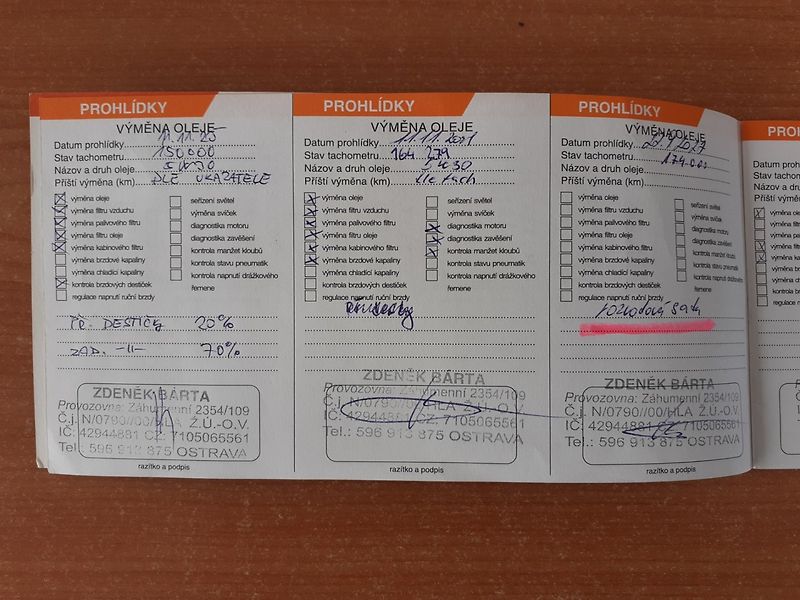 PROHLÍDKY
VÝMĚNA OLEJE
Datum prohlídky 11.11.20
Stav tachometru 150000
Názov a druh oleje 5W30
Příští výměna (km) DLE UKAZATELE
výměna oleje
výměna filtru vzduchu
výměna palivového filtru
výměna filtru oleje
výměna kabinového filtru
výměna brzdové kapaliny
výměna chladící kapaliny
kontrola brzdových destiček
regulace napnutí ruční brzdy
seřízení světel
výměna svíček
diagnostika motoru
diagnostika zavěšení
kontrola manžet kloubů
kontrola stavu pneumatik
kontrola napnutí drážkového
řemene
PŘ. DESTIČKY 20%
ZAD. -II- 70%
ZDENĚK BÁRTA
Provozovna: Záhumenní 2354/109
Č.j. N/0790//00/HLA Ž.Ú.-O.V.
IČ: 42944881 CZ: 7105065561
Tel.: 596 913 875 OSTRAVA
razítko a podpis
PROHLÍDKY
VÝMĚNA OLEJE
Datum prohlídky 11.11.2021
Stav tachometru 164 279
Názov a druh oleje 5W30
Příští výměna (km) dle tach
výměna oleje
výměna filtru vzduchu
výměna palivového filtru
výměna filtru oleje
výměna kabinového filtru
výměna brzdové kapaliny
výměna chladící kapaliny
kontrola brzdových destiček
regulace napnutí ruční brzdy
seřízení světel
výměna svíček
diagnostika motoru
diagnostika zavěšení
kontrola manžet kloubů
kontrola stavu pneumatik
kontrola napnutí drážkového
řemene
ZDENĚK BÁRTA
Provozovna: Záhumenní 2354/109
Č.j. N/0790//00/HLA Ž.Ú.-O.V.
IČ: 42944881 CZ: 7105065561
Tel.: 596 913 875 OSTRAVA
razítko a podpis
PROHLÍDKY
VÝMĚNA OLEJE
Datum prohlídky
Stav tachometru 174000
Názov a druh oleje
Příští výměna (km)
výměna oleje
výměna filtru vzduchu
výměna palivového filtru
výměna filtru oleje
výměna kabinového filtru
výměna brzdové kapaliny
výměna chladící kapaliny
kontrola brzdových destiček
regulace napnutí ruční brzdy
seřízení světel
výměna svíček
diagnostika motoru
diagnostika zavěšení
kontrola manžet kloubů
kontrola stavu pneumatik
kontrola napnutí drážkového
řemene
rozvodová sada
ZDENĚK BÁRTA
Provozovna: Záhumenní 2354/109
Č.j. N/0790//00/HLA Ž.Ú.-O.V.
IČ: 42944881 CZ: 7105065561
Tel.: 596 913 875 OSTRAVA
razítko a podpis